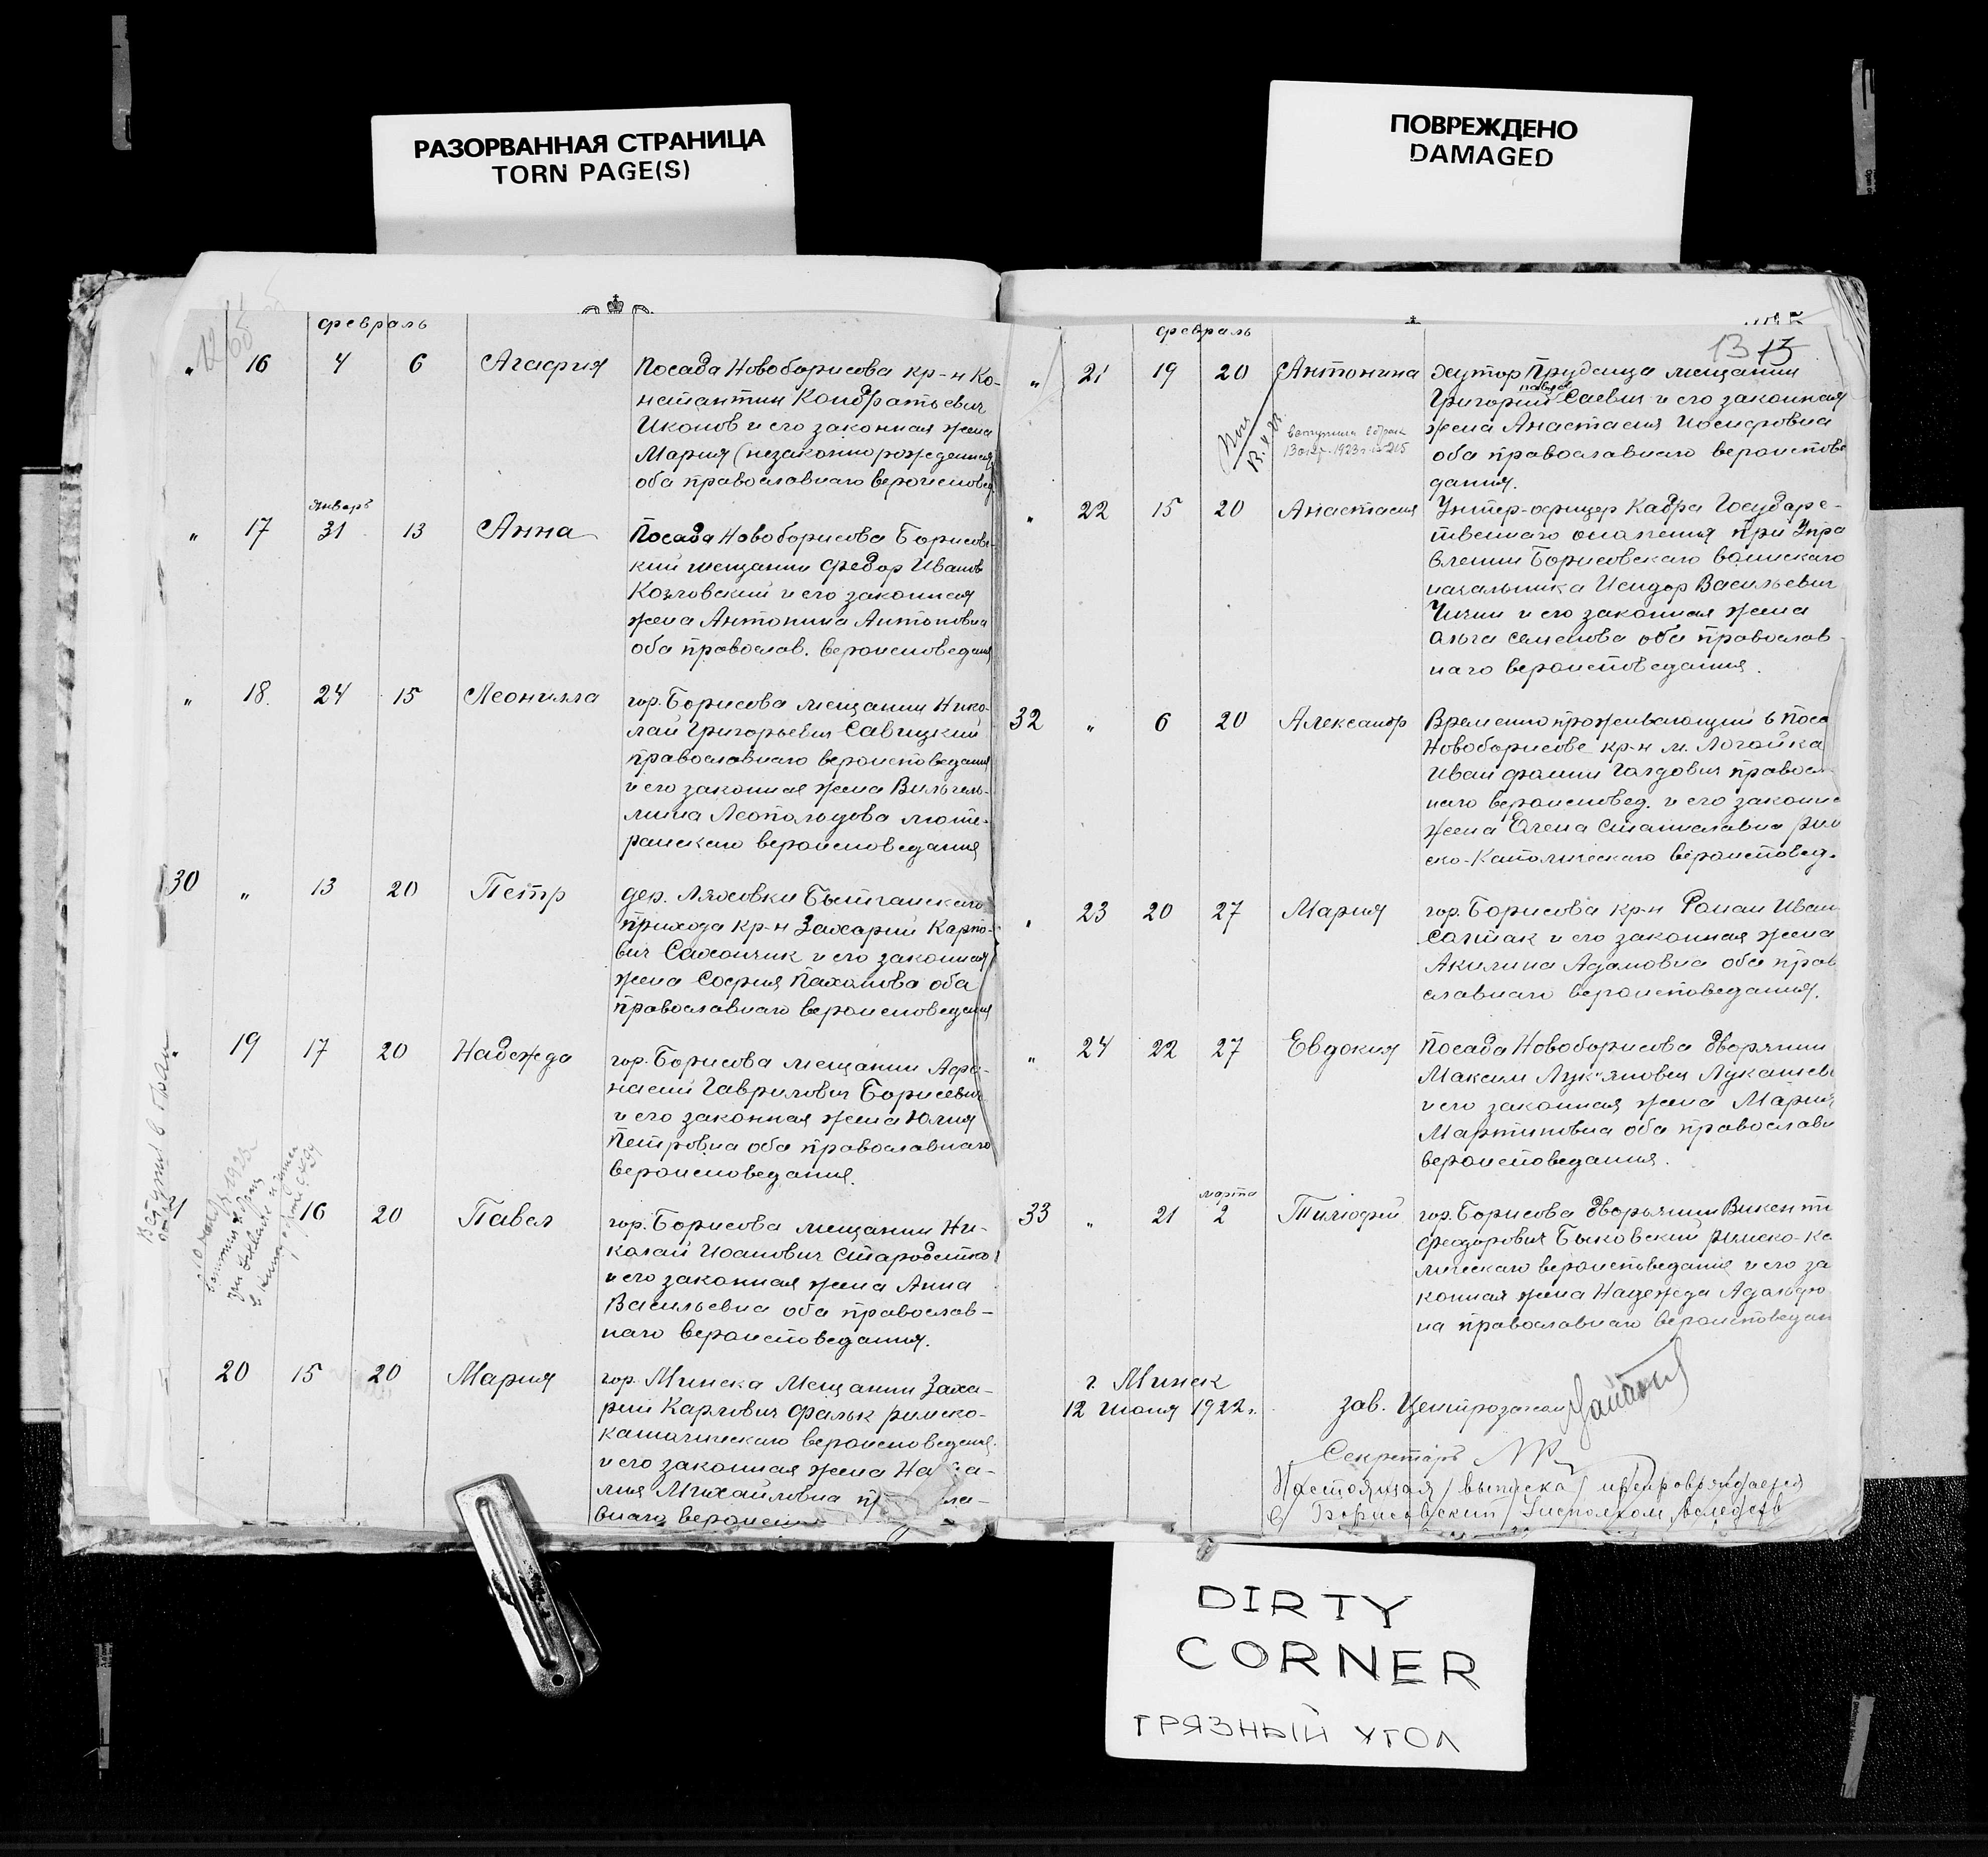 РАЗОРВАННАЯ СТРАНИЦА
TORN PAGE(S)
ПОВРЕЖДЕНО
DAMAGED
февраль
" 16 4 6 Агафия Посада Новоборисова кр-н Ко-
нстантин Кондратьевич
Иконов и его законная жена
Мария (незаконнорожденная)
оба православнаго вероисповед
январь
" 17 31 13 Анна Посада Новоборисова Борисовс-
кий мещанин Федор Иванов
Козловский и его законная
жена Антонина Антоновна
оба православ. вероисповедания
" 18. 24 15 Леонилла гор. Борисова мещанин Нико-
лай Григорьевич Савицкий
православнаго вероисповедания
и его законная жена Вильгель-
мина Леопольдова люте-
ранскаго вероисповедания
30 " 13 20 Петр дер. Ляховки Бытчанскаго
прихода кр-н Захарий Карпо-
вич Сахончик и его законная
жена София Пахомова оба
православнаго вероисповедания
" 19 17 20 Надежда гор. Борисова мещанин Афа-
насий Гаврилович Борисевич
и его законная жена Юлия
Петровна оба православнаго
вероисповедания.
16 20 Павел гор. Борисова мещанин Ни-
колай Иоанович
и его законная жена Анна
Васильевна оба православ-
наго вероисповедания.
20 15 20 Мария гор. Минска мещанин Заха-
рий Карлович Фальк римско-
католическаго вероисповедания
и его законная жена
Михайловна
внаго
Вступил в брак
февраль
13 13
" 21 19 20 Антонина хутор Прудища мещанин
Григорий Савич и его законная
жена Анастасия Иосифовна
оба православнаго вероиспове
дания.
вступила в брак
1923 г. № 215
" 22 15 20 Анастасия Унтер-офицер Кадра Государс-
твеннаго ополчения при Упра
влении Борисовскаго воинскаго
начальника Исидор Васильевич
Чичин и его законная жена
Ольга Семенова оба православ
наго вероисповедания.
32 " 6 20 Александр Временно проживающий в поса
Новоборисове кр-н м. Логойка
Иван Фомин Голдович правосл-
наго вероисповед. и его законна
жена Елена Станиславна рим
ско-Католическаго вероисповед.
" 23 20 27 Мария гор. Борисова кр-н Роман Иван
и его законная жена
Акилина Адамовна оба прав
славнаго вероисповедания.
" 24 22 27 Евдокия Посада Новоборисова дворянин
Максим Лукьянович Лукашев
и его законная жена Мария
Мартиновна оба православн
вероисповедания.
марта
33 " 21 2 Тимофей гор. Борисова дворянин Викенти
Феодорович Быковский римско-ка
лическаго вероисповедания и его за
конная жена Надежда Адольфо
на православнаго вероисповедан
г. Минск
12 июля 1922 г.
зав. Центрозагсом
Секретарь
Настоящая выписка препровождается
в Борисовский Уисполком вследств
DIRTY
CORNER
ГРЯЗНЫЙ УГОЛ